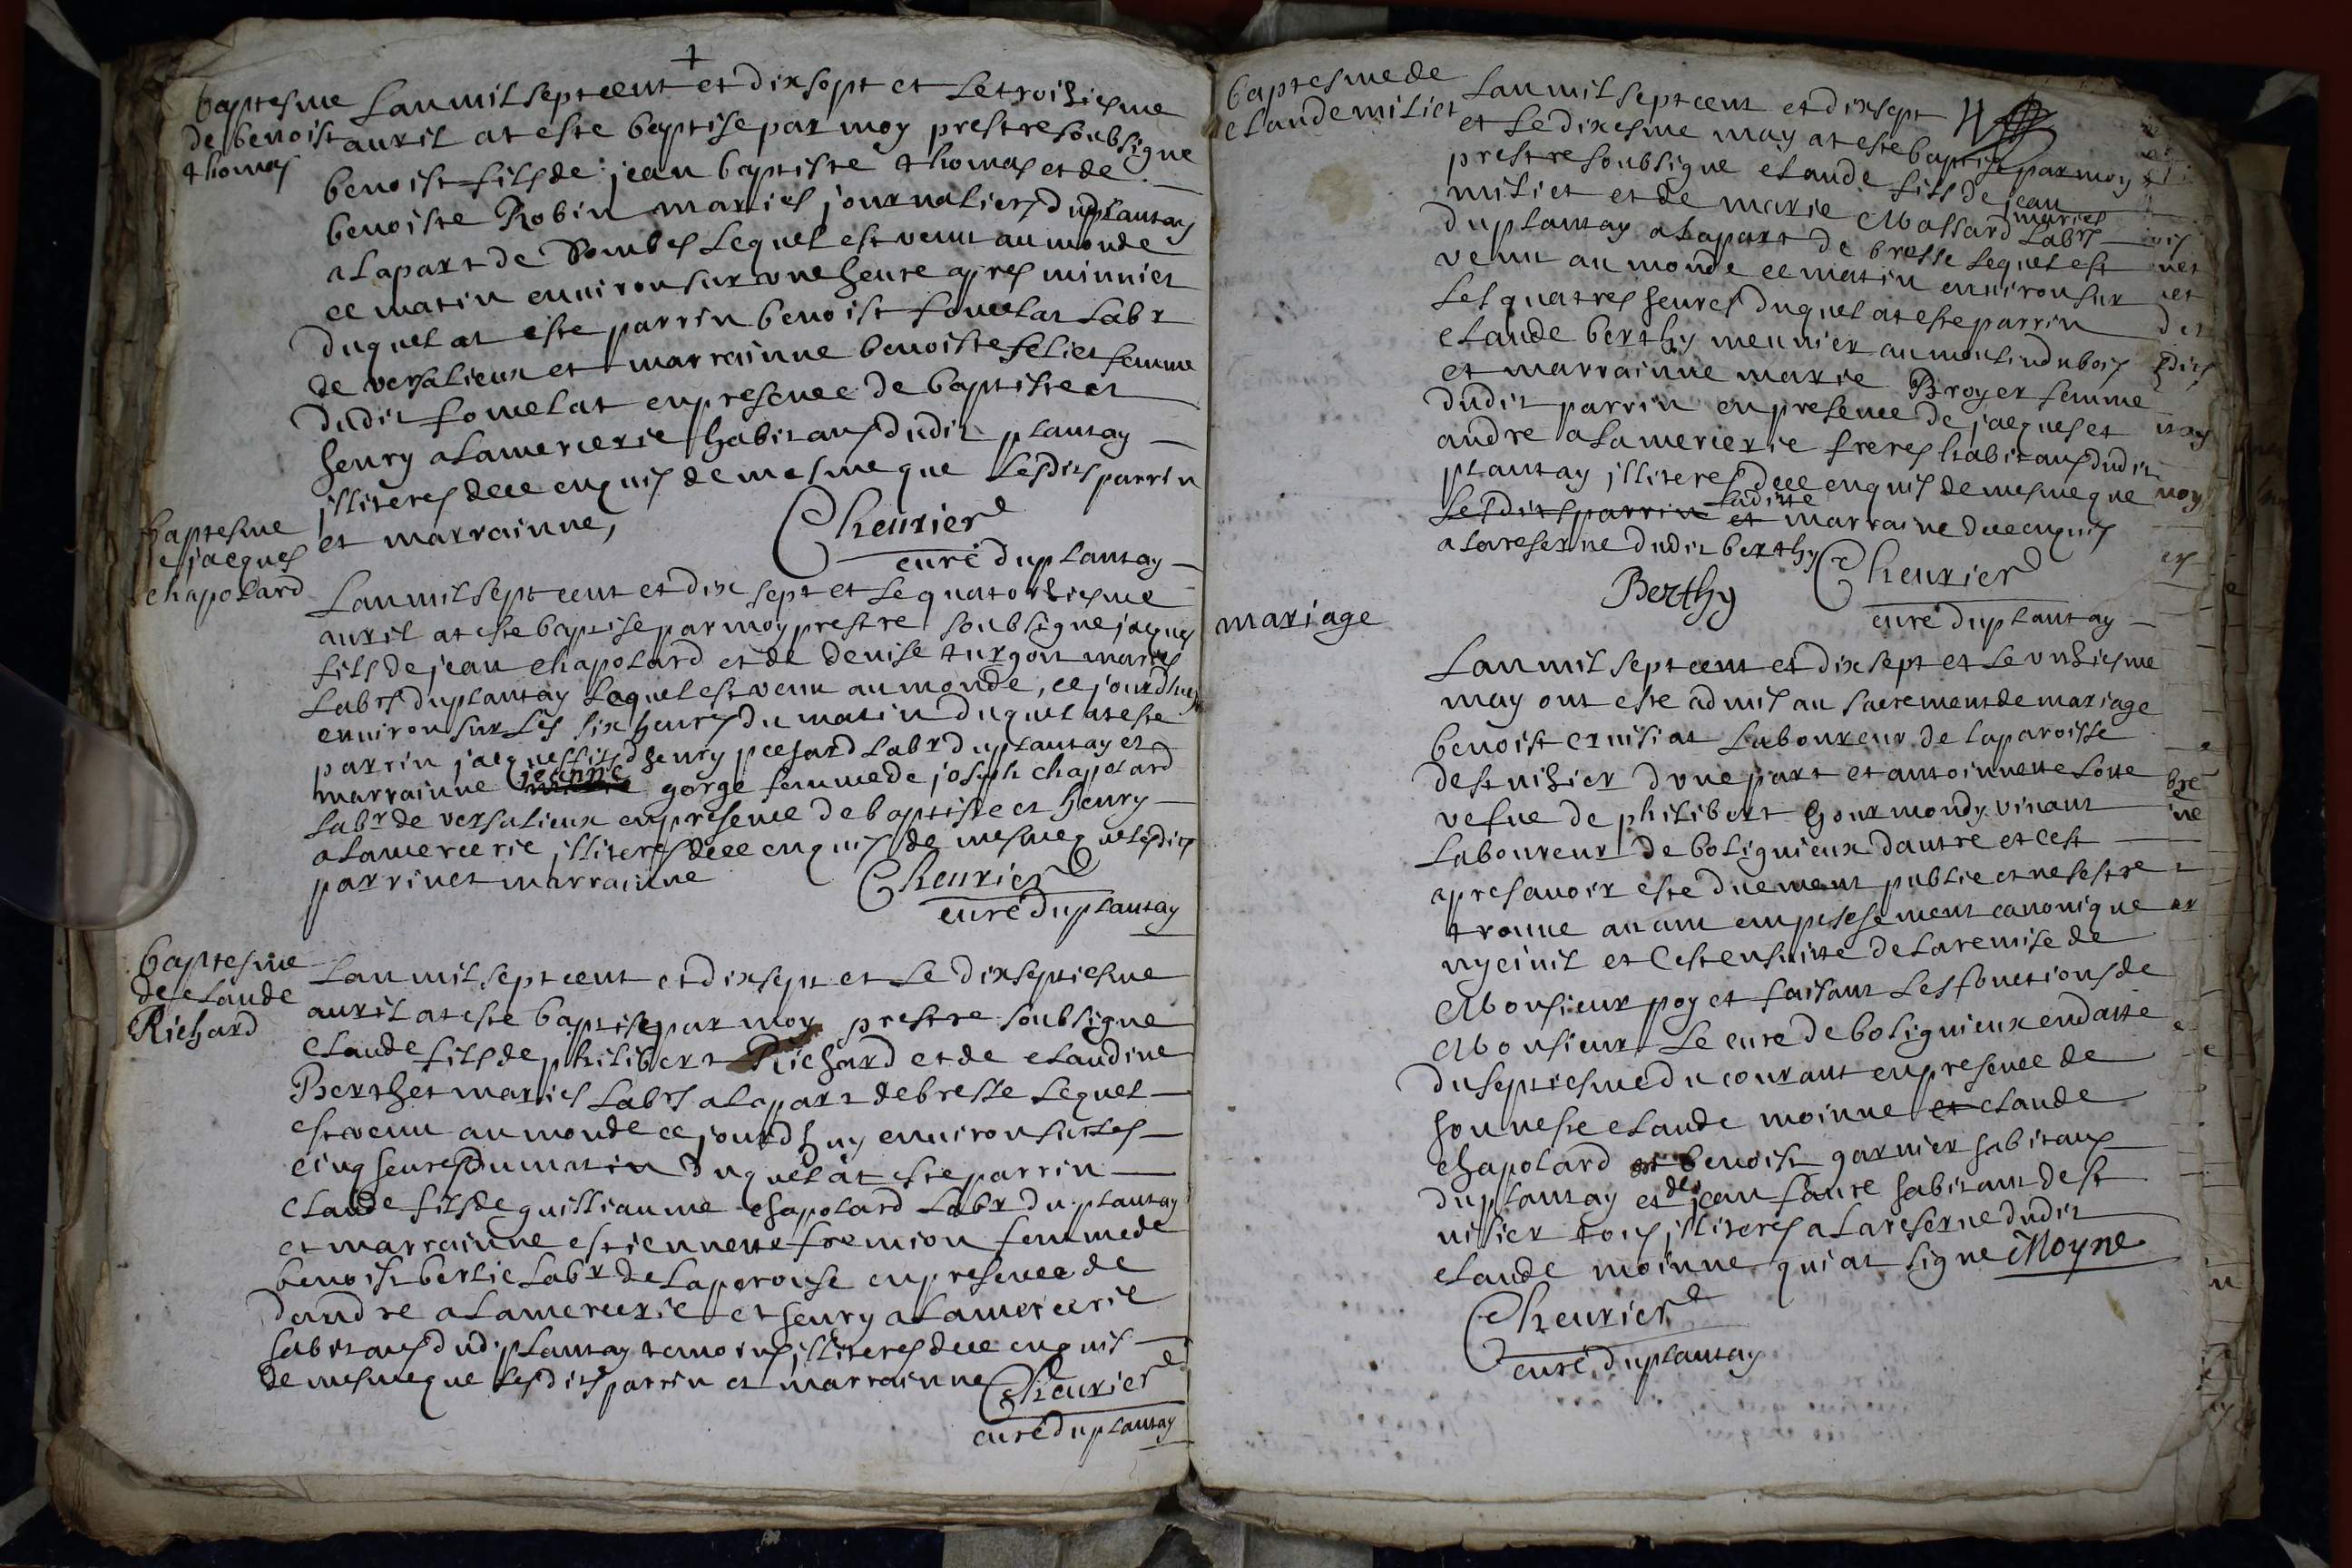 baptesme
de benoist
thomas
Lan mil sept cent et dix sept et le troisiesme
auril at este baptise par moy prestre soubsigne
benoist fils de jean baptiste thomas et de
benoiste Robin mariés journaliers du plantay
a la part de Dombes lequel est venu au monde
ce matin enuiron sur vne heure apres minuict
duquel at este parrin benoist fomelat labr
de versalieux et marrainne benoiste feliet femme
dudit fomelat en presence de baptiste et
henry alamercerie habitans dudit plantay
illiteres dece enquis de mesme que lesdits parrin
et marrainne,
Cheurier
curé du plantay
baptesme
jacques
chapolard
Lan mil sept cent et dix sept et le quatorsiesme
auril at este baptise par moy prestre soubsigne jacques
fils de jean chapolard et de denise turgon mariés
labrs du plantay lequel est venu au monde, ce jourdhuy
enuiron sur les six heures du matin duquel at este
parrin jacques fils dhenry peesard labr du plantay et
marrainne jeanne gorge femme de joseph chapolard
labr de versalieux en presence de baptiste et henry
alamercerie illiteres dece enquis de mesme que lesdits
parrin et marrainne
Cheurier
curé du plantay
baptesme
de claude
Richard
Lan mil sept cent et dix sept et le dix septiesme
auril at este baptise par moy prestre soubsigne
claude fils de philibert Richard et de claudine
Berthet mariés labrs a la part de bresse lequel
est venu au monde ce jourdhuy enuiron sur les
cinq heures du matin duquel at este parrin
claude fils de guilliaume chapolard labr du plantay
et marrainne estiennette fremion femme de
benoist berlie labr de laperouse en presence de
dandre alamercerie et henry alamercerie
habitans dudi plantay temoins illiteres dece enquis
de mesme que lesdits parrin et marrainne
Cheurier
curé du plantay
baptesme de
claude miliet
Lan mil sept cent et dix sept
et le dixesme may at este baptise par moy
prestre soubsigne claude fils de jean
miliet et de marie Massard mariés labrs
du plantay a la part de bresse lequel est
venu au monde ce matin enuiron sur
les quatres heures duquel at este parrin
claude berthy meunier au moulin du bois
et marrainne marie Broyer femme
dudit parrin en presence de jacques et
andre alamercerie freres habitans dudit
plantay illiteres dece enquis de mesme que
lesdits parrin et ladite marraine dece enquis
a la reserue dudit berthy
Berthy
Cheurier
curé du plantay
mariage
Lan mil sept cent et dix sept et le vnsiesme
may ont este admis au sacrement de mariage
benoist cruisiat laboureur de la paroisse
de st nisier dune part et antoinnette losse
vefue de philibert gourmondy viuant
laboureur de bolignieux dautre et cest
apres auoir este duement publie et ne sestre
trouue aucun empeschement canonique
ny ciuil et cest ensuitte de la remise de
Monsieur poyet faisant les fonctions de
Monsieur le curé de boligneux en datte
du septiesme du courant en presence de
honneste claude moinne et claude
chapolard et benoist garnier habitans
du plantay et de jean faure habitant de st
nisier tous illiteres a la reserue dudit
claude moinne qui at signe Moyne
Cheurier
curé du plantay